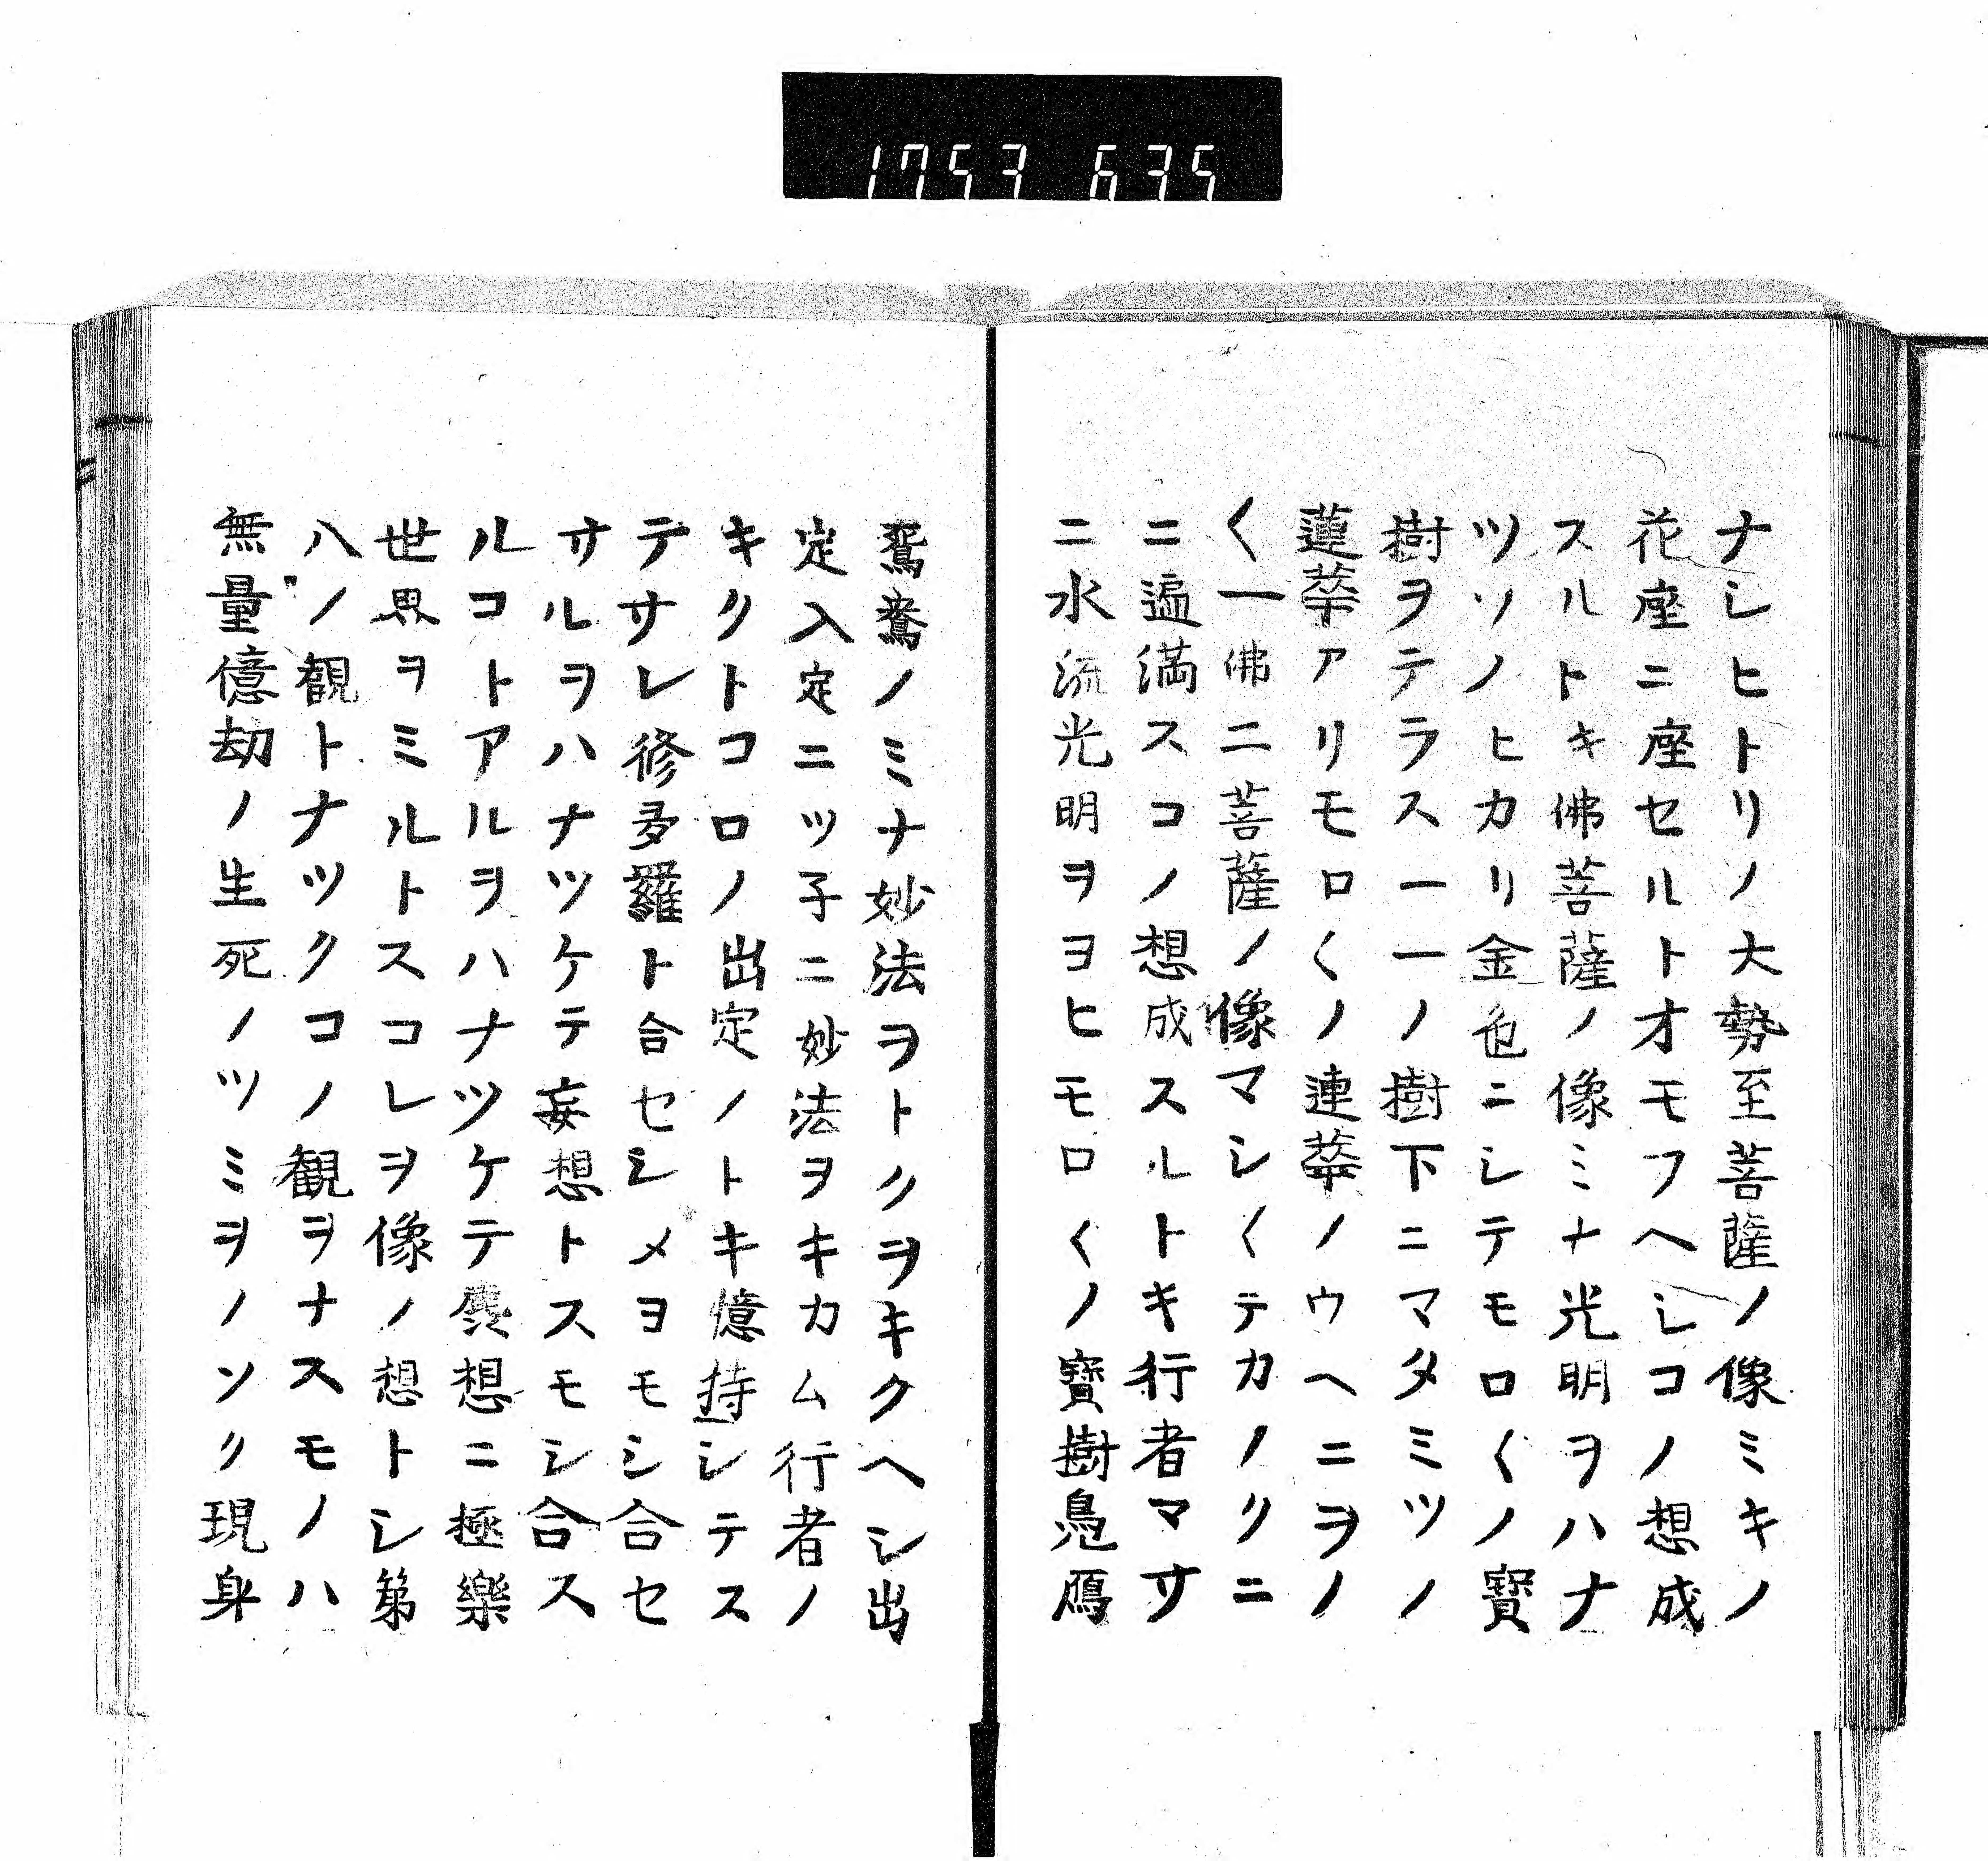 1753 635
ナシヒトリノ大勢至菩薩ノ像ミキノ
花座ニ座セルトオモフヘシコノ想成
スルトキ佛菩薩ノ像ミナ光明ヲハナ
ツソノヒカリ金色ニシテモロ〱ノ寳
樹ヲテラス一一ノ樹下ニマタミツノ
蓮華アリモロ〱ノ連華ノウヘニヲノ
〱一佛二菩薩ノ像マシ〱テカノクニ
ニ遍満スコノ想成スルトキ行者マサ
ニ水流光明ヲヨヒモロ〱ノ寳樹鳧鴈
鴛鴦ノミナ妙法ヲトクヲキクヘシ出
定入定ニツ子ニ妙法ヲキカム行者ノ
キクトコロノ出定ノトキ憶持シテス
テサレ修多羅ト合セシメヨモシ合セ
サルヲハナツケテ妄想トスモシ合ス
ルコトアルヲハナツケテ麁想ニ極樂
世界ヲミルトスコレヲ像ノ想トシ第
八ノ観トナツクコノ観ヲナスモノハ
無量億劫ノ生死ノツミヲノソク現身